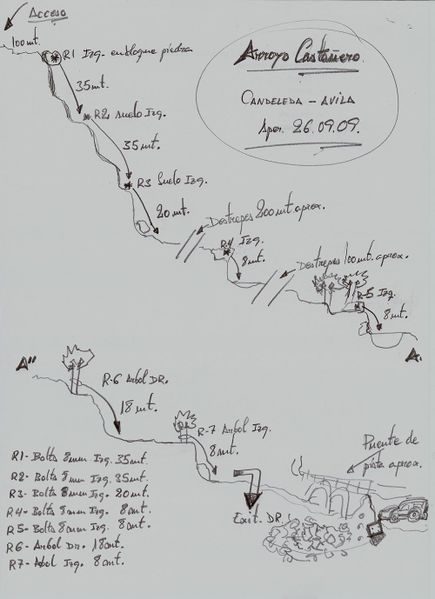 Acceso
100 mt.
R1 Izq. en bloque piedra
Arroyo Castañero.
CANDELEDA - AVILA
Aper. 26.09.09.
35 mt.
R2 suelo Izq.
35 mt.
R3 Suelo Izq.
20 mt.
Destrepes 200 mt. aprox.
R4 Izq.
8 mt.
Destrepes 100 mt. aprox.
R-5 Izq.
8 mt.
A.
A"
R-6 Arbol DR.
18 mt.
R-7 Arbol Izq.
8 mt.
Puente de
pista aprox.
Exit. DR.
R1- Bolts 8mm Izq. 35 mt.
R2- Bolts 8mm Izq. 35 mt.
R3- Bolts 8mm Izq. 20 mt.
R4- Bolts 8mm Izq. 8 mt.
R5- Bolts 8mm Izq. 8 mt.
R6- Arbol Dr. 18 mt.
R7- Arbol Izq. 8 mt.